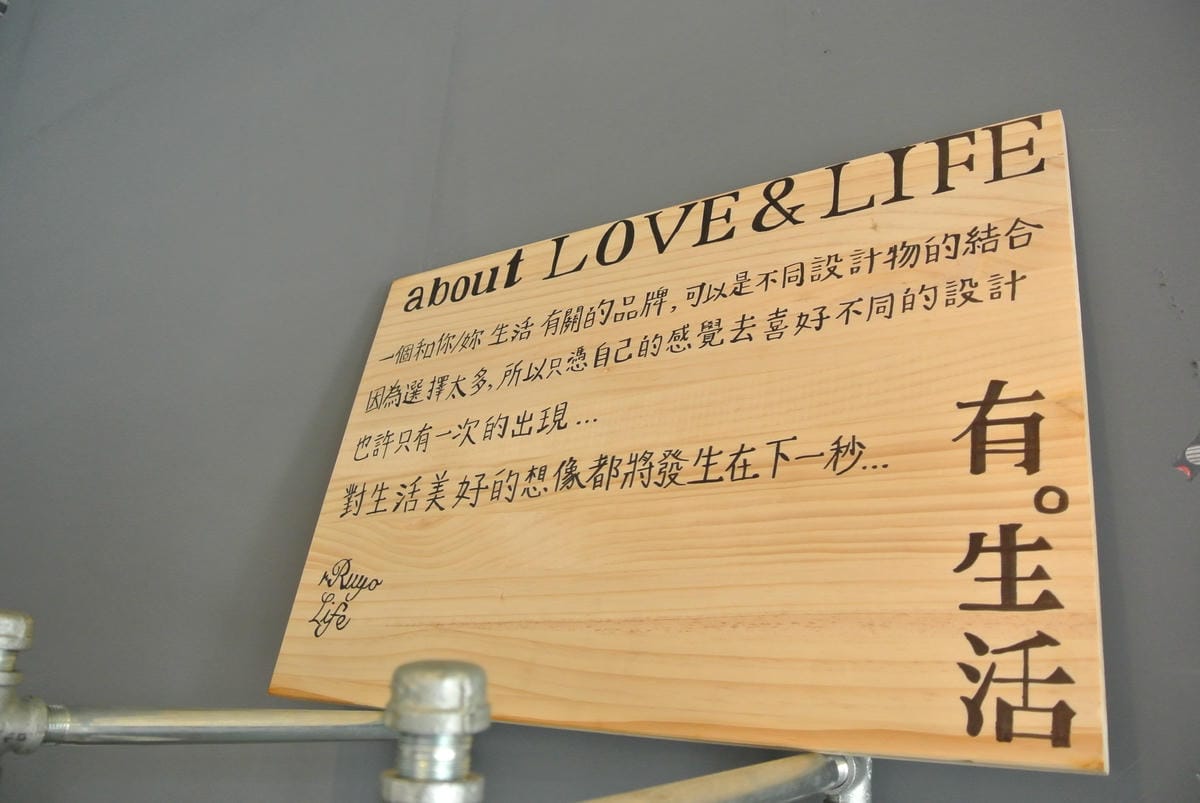 about LOVE & LIFE
一個和你/妳 生活 有關的品牌,可以是不同設計物的結合
因為選擇太多,所以只憑自己的感覺去喜好不同的設計
也許只有一次的出現...
對生活美好的想像都將發生在下一秒...
有。生活
rRuyo
Life